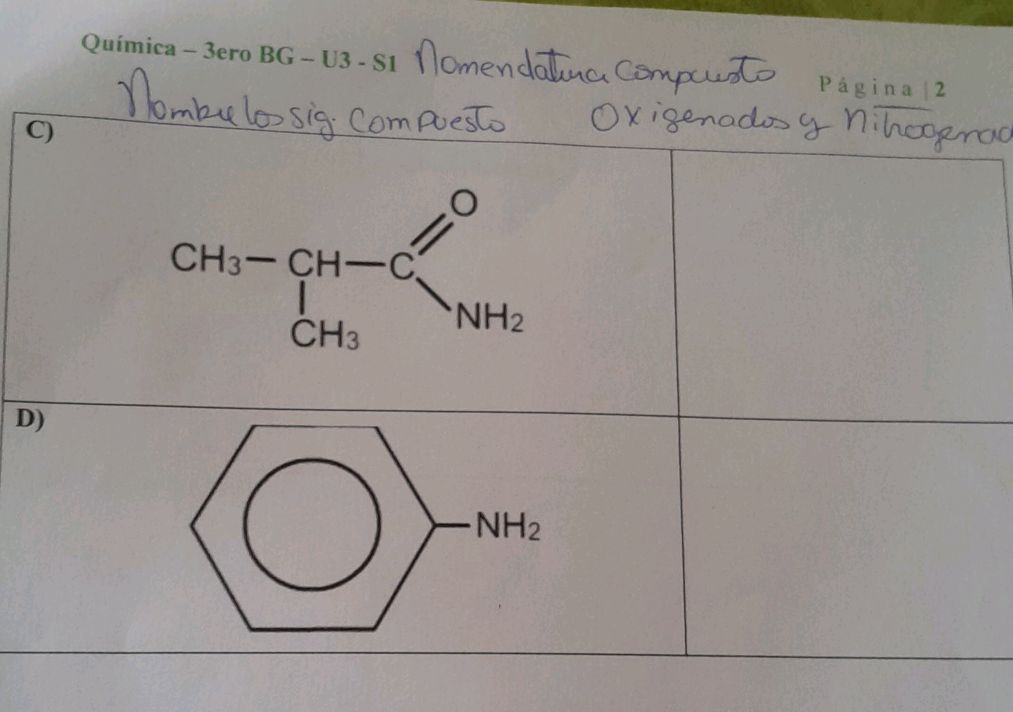 Química – 3ero BG – U3 - S1 Nomendatura Compuesto
Página | 2
Nombre los sig. Compuesto Oxigenados y Nitrogenad
C)
O
CH3 – CH – C
NH2
CH3
D)
NH2